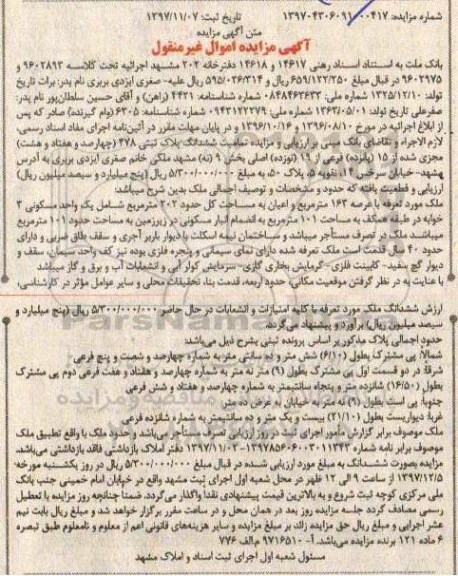 شماره مزایده: ۱۳۹۷۰۴۳۰۶۰۹۱۰۰۰۴۱۷ تاریخ ثبت: ۱۳۹۷/۱۱/۰۷
متن آگهی مزایده
آگهی مزایده اموال غیرمنقول
بانک ملت به استناد اسناد رهنی ۱۴۶۱۷ و ۱۴۶۱۸ دفترخانه ۲۰۲ مشهد اجرائیه تحت کلاسه ۹۶۰۲۸۹۳ و
۹۶۰۲۹۷۵ در قبال مبلغ ۶۵۹/۱۲۲/۲۵۰ ریال و ۵۹۵/۰۳۶/۳۱۴ ریال علیه- صغری ایزدی بربری نام پدر: برات تاریخ
تولد: ۱۳۲۵/۱۲/۱۰ شماره ملی: ۰۸۴۸۴۶۳۶۳۳ شماره شناسنامه: ۴۴۲۱ (راهن) و آقای حسین سلطان‌پور نام پدر:
صفرعلی تاریخ تولد: ۱۳۶۳/۰۵/۰۱ شماره ملی: ۰۹۴۳۱۲۲۲۷۹ شماره شناسنامه: ۶۳۰۵ (وام گیرنده) صادر که پس
از ابلاغ اجرائیه در مورخ ۱۳۹۶/۰۸/۱۰ و ۱۳۹۶/۱۰/۱۶ و در پایان مهلت مقرر در آئین‌نامه اجرای مفاد اسناد رسمی،
لازم الاجراء و تقاضای بانک مبنی بر ارزیابی و مزایده تمامیت ششدانگ پلاک ثبتی ۴۷۸ (چهارصد و هفتاد و هشت)
مجزی شده از ۱۵ (پانزده) فرعی از ۱۹ (نوزده) اصلی بخش ۹ (نه) مشهد ملکی خانم صغری ایزدی بربری به آدرس
مشهد- خیابان سرخس ۱۴، نقویه ۵، پلاک ۵۰، به مبلغ ۵/۳۰۰/۰۰۰/۰۰۰ ریال (پنج میلیارد و سیصد میلیون ریال)
ارزیابی و قطعیت یافته که حدود و مشخصات و توصیف اجمالی ملک بدین شرح میباشد:
ملک مورد تعرفه با عرصه ۱۶۳ مترمربع و اعیان به مساحت کل حدود ۲۰۲ مترمربع شامل یک واحد مسکونی ۳
خوابه در طبقه همکف به مساحت ۱۰۱ مترمربع به انضمام انبار مسکونی در زیرزمین به مساحت حدود ۱۰۱ مترمربع
میباشد ملک در تصرف مستأجر میباشد و ساختمان نیمه اسکلت با دیوار باربر آجری و سقف طاق ضربی و دارای
حدود ۴۰ سال قدمت است ملک تعرفه شده دارای نمای سیمانی و پنجره فلزی بوده نیز کف واحد سیمان، سقف و
دیوار گچ سفید- کابینت فلزی- گرمایش بخاری گازی- سرمایش کولر آبی و انشعابات آب و برق و گاز میباشد
با عنایت به در نظر گرفتن موقعیت مکانی، حدود اربعه، قدمت بنا، تحقیقات محلی و سایر عوامل مؤثر در کارشناسی،
ارزش ششدانگ ملک مورد تعرفه با کلیه امتیازات و انشعابات در حال حاضر ۵/۳۰۰/۰۰۰/۰۰۰ ریال (پنج میلیارد و
سیصد میلیون ریال) برآورد و پیشنهاد می‌گردد.
حدود اجمالی پلاک مذکور بر اساس پرونده ثبتی بشرح ذیل می‌باشد:
شمالا: پی مشترک بطول (۶/۱۰) شش متر و ده سانتی متر به شماره چهارصد و شصت و پنج فرعی
شرقا: در دو قسمت اول پی مشترک بطول (۹) متر نه متر به شماره چهارصد و هفتاد و هفت فرعی دوم پی مشترک
بطول (۱۶/۵۰) شانزده متر و پنجاه سانتیمتر به شماره چهارصد و هفتاد و شش فرعی
جنوبا: پی است بطول (۹) نه متر به خیابان به عرض ده متر
غربا: دیواریست بطول (۲۱/۱۰) بیست و یک متر و ده سانتیمتر به شماره شانزده فرعی
ملک موصوف برابر گزارش مامور اجرای ثبت در روز ارزیابی تصرف مستأجر می‌باشد و حدود ملک با واقع تطبیق ملک
موصوف برابر نامه شماره ۱۳۹۷۸۵۶۰۶۰۰۳۰۱۱۳۴۳-۱۳۹۷/۱۱/۰۳ دفتر املاک بازداشتی فاقد بازداشتی می‌باشد.
مزایده بصورت ششدانگ به مبلغ مورد ارزیابی شده در قبال مبلغ ۵/۳۰۰/۰۰۰/۰۰۰ ریال در روز یکشنبه مورخه-
۱۳۹۷/۱۲/۵ از ساعت ۹ الی ۱۲ ظهر در محل شعبه اول اجرای ثبت مشهد واقع در خیابان امام خمینی جنب بانک
ملی مرکزی کوچه ثبت شروع و به بالاترین قیمت پیشنهادی نقدا واگذار می‌گردد. ضمنا چنانچه روز مزایده با تعطیل
رسمی مصادف گردد جلسه مزایده روز بعد در همان محل و در ساعت مقرر برگزار خواهد شد و مبلغ ریال بابت نیم
عشر اجرایی و مبلغ ریال حق مزایده زائد بر مبلغ مزایده و سایر هزینه‌های قانونی اعم از معلوم و نامعلوم طبق تبصره
۶ ماده ۱۲۱ برنده مزایده می‌باشد. آ- ۹۷۱۶۵۱۰ م.الف ۷۷۶
مسئول شعبه اول اجرای ثبت اسناد و املاک مشهد